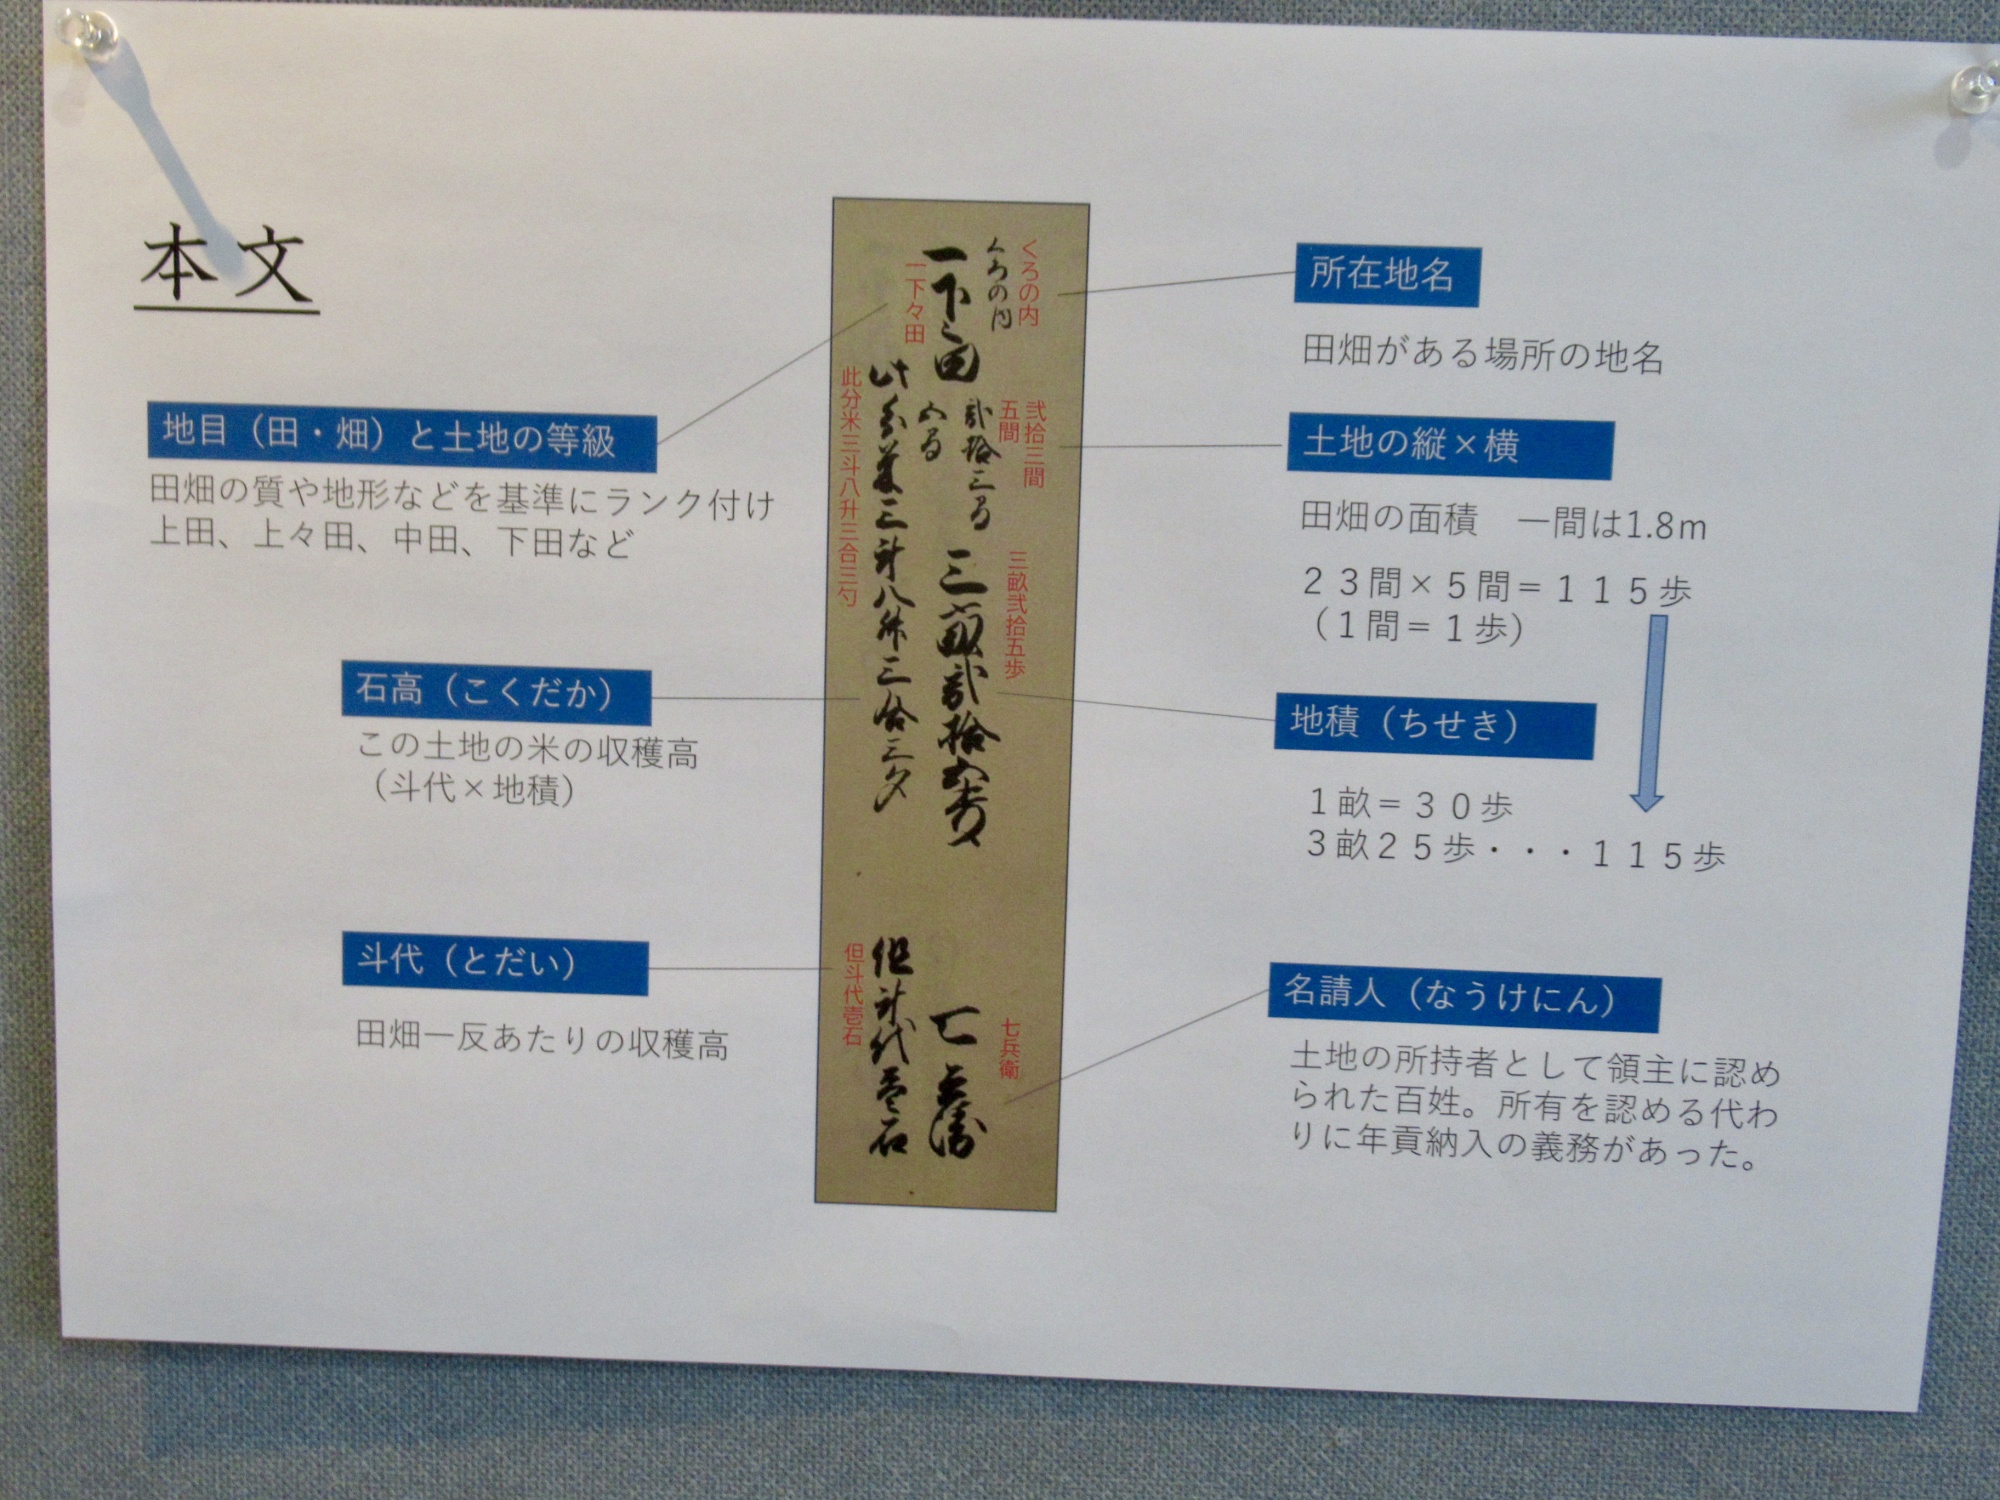 本文
地目（田・畑）と土地の等級
田畑の質や地形などを基準にランク付け
上田、上々田、中田、下田など
石高（こくだか）
この土地の米の収穫高
（斗代×地積）
斗代（とだい）
田畑一反あたりの収穫高
くろの内
くろの内
一下々田
一下々田
弐拾三間
五間
弐拾三間
五間
三畝弐拾五歩
三畝弐拾五歩
此分米三斗八升三合三勺
此分米三斗八升三合三勺
七兵衛
七兵衛
但斗代壱石
但斗代壱石
所在地名
田畑がある場所の地名
土地の縦×横
田畑の面積　一間は1.8m
２３間×５間＝１１５歩
（１間＝１歩）
地積（ちせき）
１畝＝３０歩
３畝２５歩・・・１１５歩
名請人（なうけにん）
土地の所持者として領主に認め
られた百姓。所有を認める代わ
りに年貢納入の義務があった。